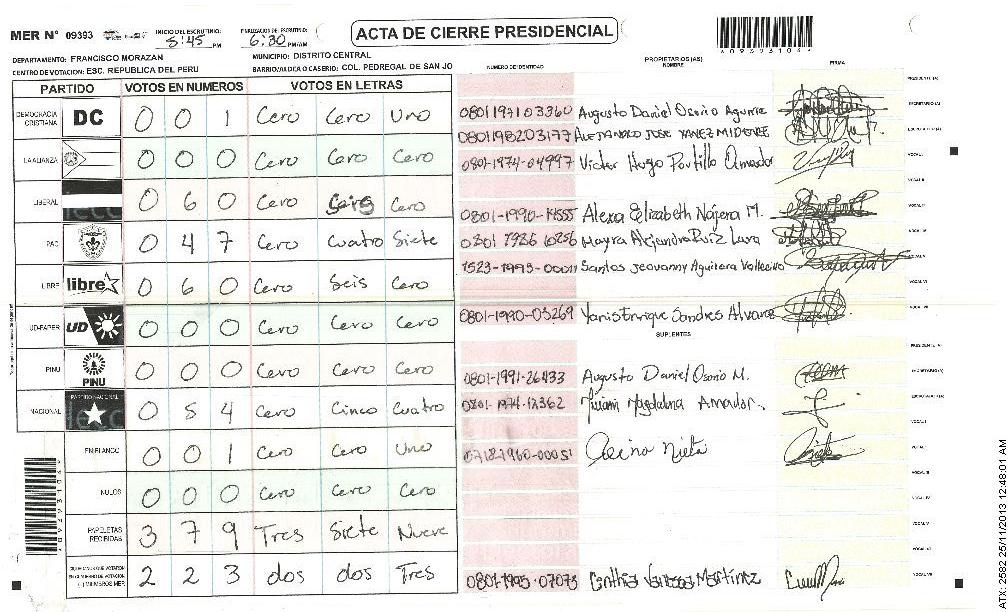 MER N° 09393 INICIO DEL ESCRUTINIO: 5:45 PM FINALIZACION DEL ESCRUTINIO: 6:30 PM/AM ACTA DE CIERRE PRESIDENCIAL
DEPARTAMENTO: FRANCISCO MORAZAN MUNICIPIO: DISTRITO CENTRAL
CENTRO DE VOTACION: ESC. REPUBLICA DEL PERU BARRIO/ALDEA O CASERIO: COL. PEDREGAL DE SAN JO
PARTIDO VOTOS EN NUMEROS VOTOS EN LETRAS
DEMOCRACIA CRISTIANA DC 0 0 1 Cero Cero Uno
LA ALIANZA 0 0 0 Cero Cero Cero
LIBERAL 0 6 0 Cero Seis Cero
PAC 0 4 7 Cero Cuatro Siete
LIBRE libre 0 6 0 Cero Seis Cero
UD-FAPER UD 0 0 0 Cero Cero Cero
PINU PINU 0 0 0 Cero Cero Cero
NACIONAL PARTIDO NACIONAL 0 5 4 Cero Cinco Cuatro
EN BLANCO 0 0 1 Cero Cero Uno
NULOS 0 0 0 Cero Cero Cero
PAPELETAS RECIBIDAS 3 7 9 Tres Siete Nueve
2 2 3 dos dos Tres
PROPIETARIOS (AS)
NUMERO DE IDENTIDAD NOMBRE FIRMA
PRESIDENTE (A)
0801197103360 Augusto Daniel Osorio Aguirre SECRETARIO (A)
0801198203177 ALEJANDRO JOSE YANEZ ESCRUTADOR (A)
0801-1974-04997 Victor Hugo Portillo Amador VOCAL I
VOCAL II
0801-1990-14555 Alexa Elizabeth Nájera M. VOCAL III
Mayra Alejandra Ruiz Lara VOCAL IV
1523-1993-00011 Santos Jeovanny Aguilera VOCAL V
VOCAL VI
0801-1990-03269 Yanis Enrique Sandres Alvarez VOCAL VII
SUPLENTES
PRESIDENTE (A)
0801-1991-26433 Augusto Daniel Osorio M. SECRETARIO (A)
0801-1974-12362 Miriam Magdalena Amador. ESCRUTADOR (A)
VOCAL I
VOCAL II
VOCAL III
VOCAL IV
VOCAL V
VOCAL VI
0801-1995-07073 Cinthia Vanessa Martínez VOCAL VII
ATX: 2582 25/11/2013 12:48:01 AM